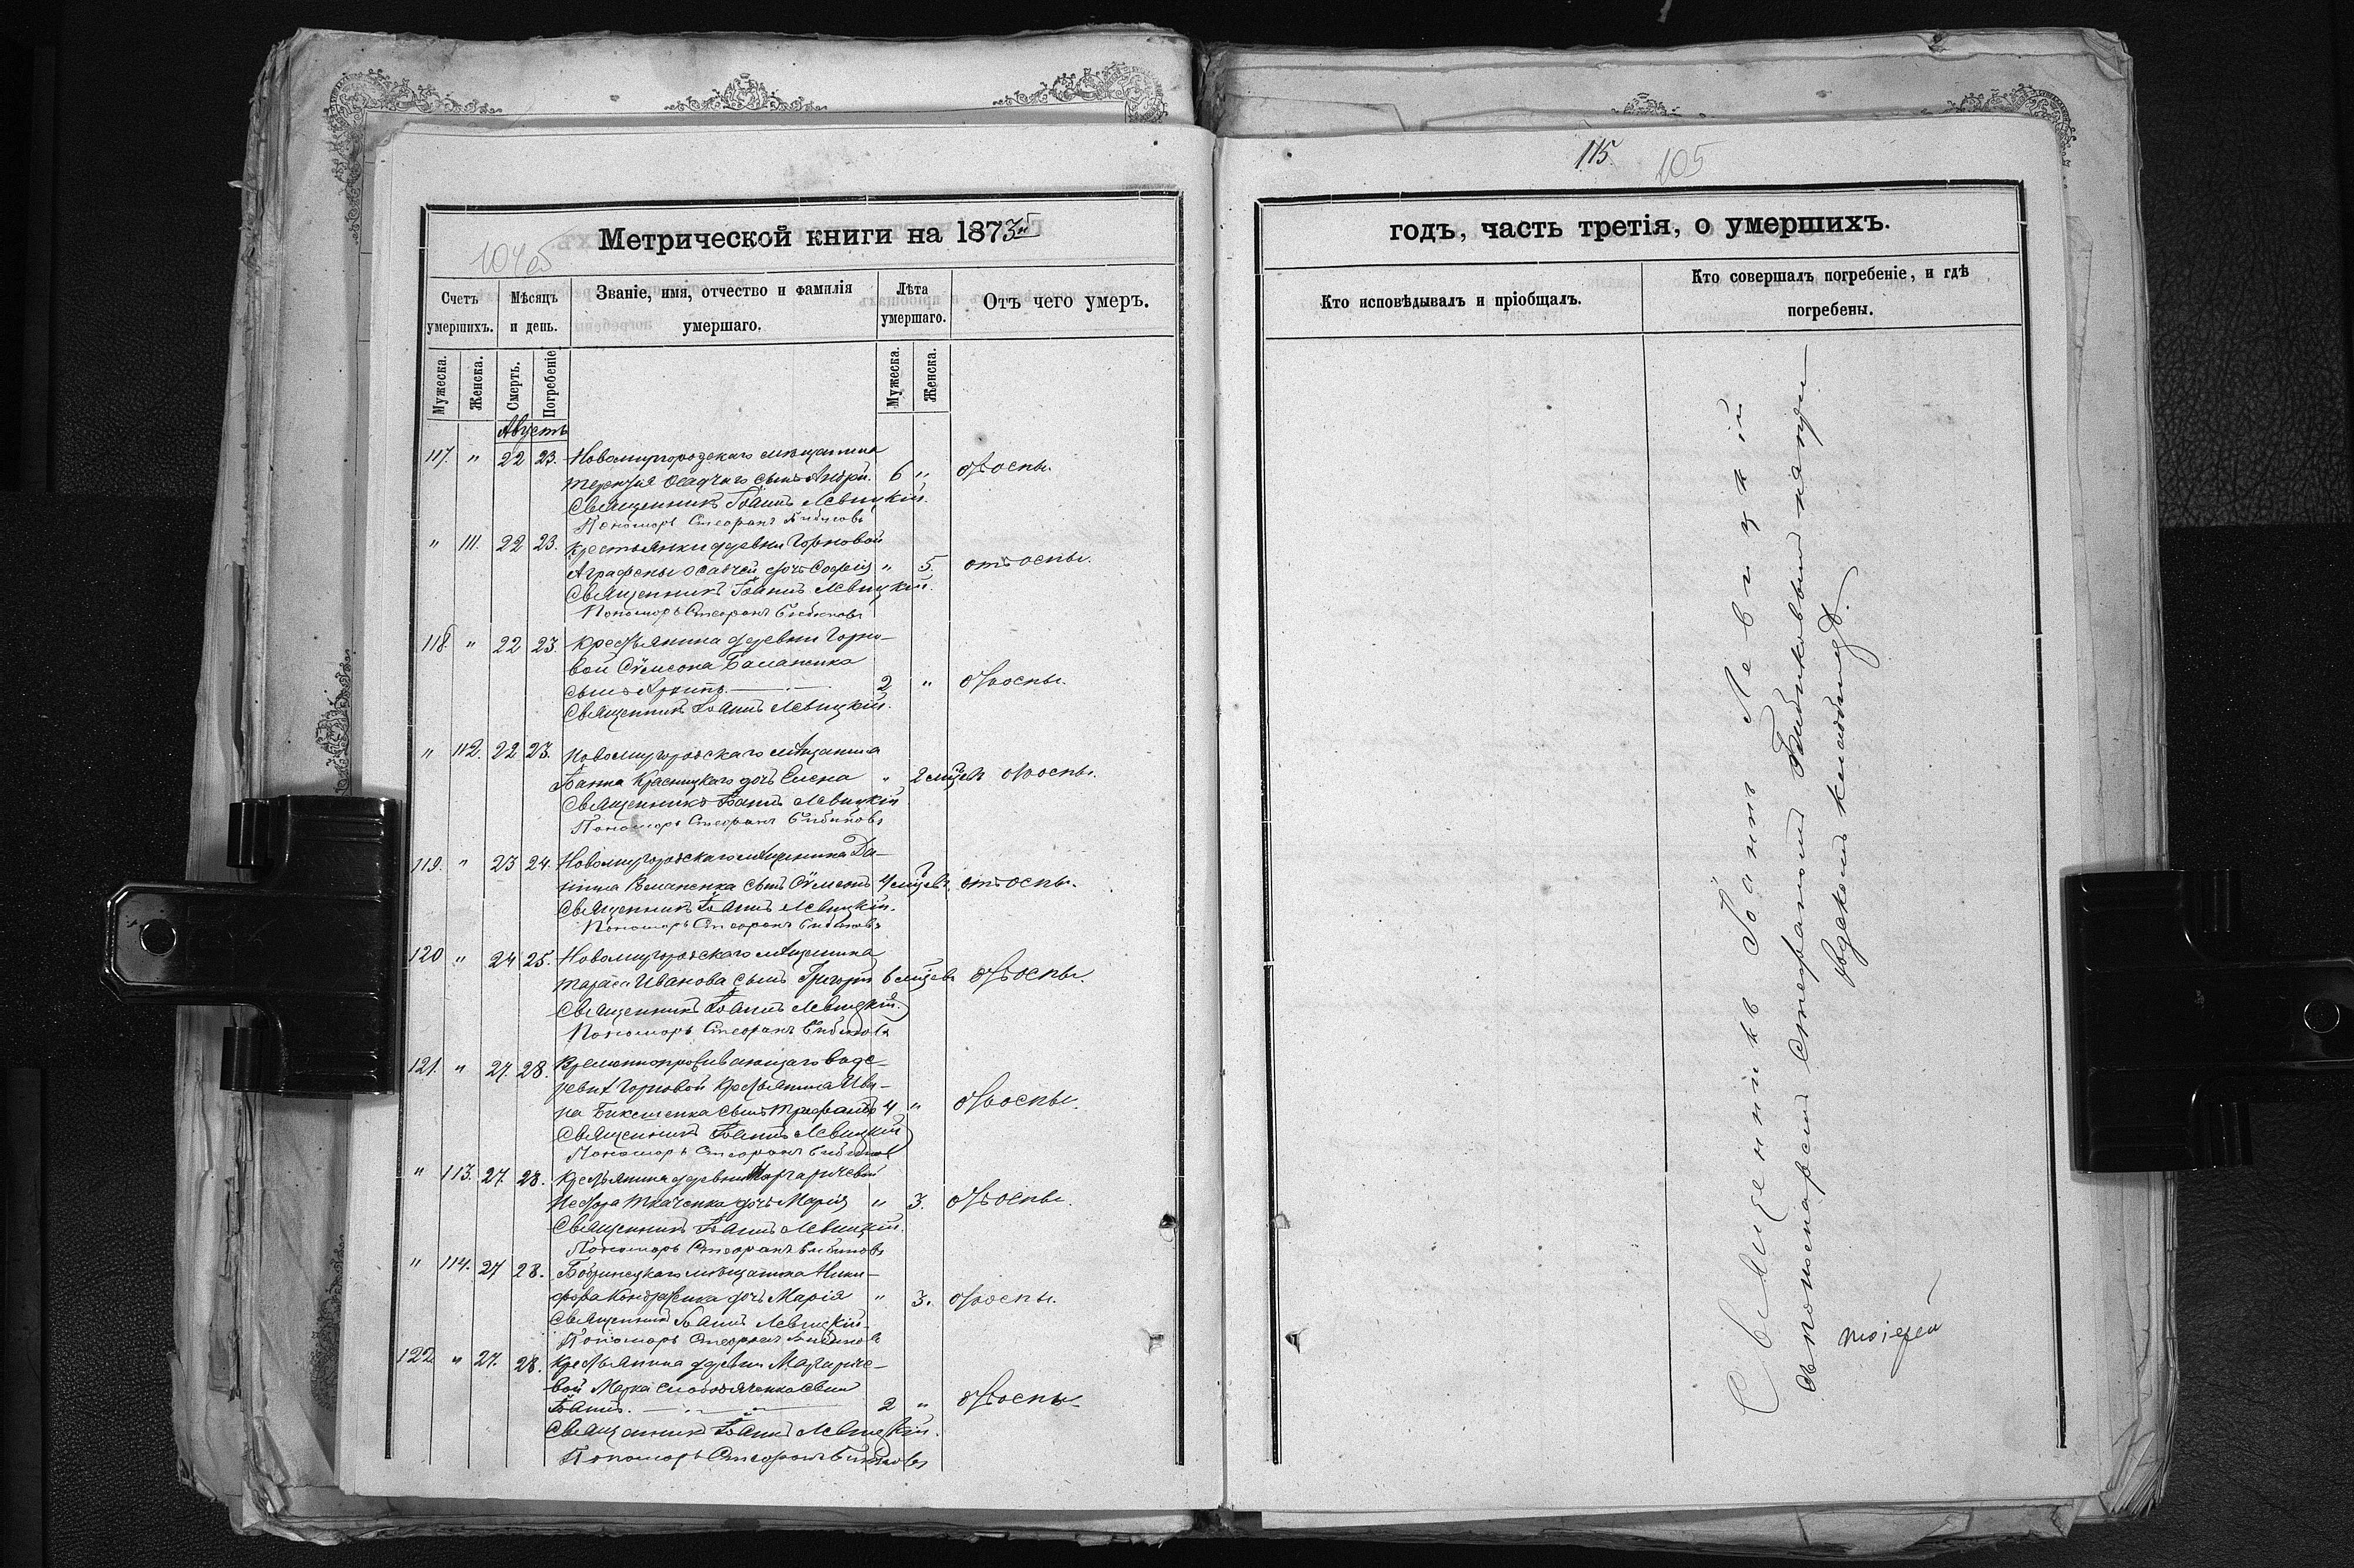 115.
105
104об
Метрической книги на 1873й
годъ, часть третія, о умершихъ.
Счетъ умершихъ.
Мѣсяцъ и день.
Званіе, имя, отчество и фамилія умершаго.
Лѣта умершаго.
Отъ чего умеръ.
Кто исповѣдывалъ и пріобщалъ.
Кто совершалъ погребеніе, и гдѣ погребены.
Мужеска.
Женска.
Смерть.
Погребеніе
Мужеска.
Женска.
Августъ
117. " 22 23. Новомиргородскаго мѣщанина
Терентія Осадчаго сынъ Андрей. 6 " отъ оспы.
Священникъ Іоаннъ Левицкій.
Пономарь Стефанъ Бибиковъ
" 111. 22 23. Крестьянки деревни Горновой
Аграфены Осадчей дочь Софія " 5. отъ оспы.
Священникъ Іоаннъ Левицкій.
Пономарь Стефанъ Бибиковъ
118. " 22 23. Крестьянина деревни Горно-
вой Сѵмеона
сынъ Архипъ 2 " отъ оспы.
Священникъ Іоаннъ Левицкій.
" 112. 22 23. Новомиргородскаго мѣщанина
Іоанна Красницкаго дочь Елена " 2 мѣсяц отъ оспы.
Священникъ Іоаннъ Левицкій
Пономарь Стефанъ Бибиковъ
119. " 23 24. Новомиргородскаго мѣщанина Да-
ніила сынъ Сѵмеонъ 4 мѣсяц. отъ оспы.
Священникъ Іоаннъ Левицкій.
Пономарь Стефанъ Бибиковъ
120 " 24 25. Новомиргородскаго мѣщанина
Тараса Иванова сынъ Григорій 6 мѣсяц отъ оспы.
Священникъ Іоаннъ Левицкій.
Пономарь Стефанъ Бибиковъ
121. " 27. 28. Временнопроживающаго въ де-
ревнѣ Горновой Крестьянина Ива-
на сынъ Трофимъ 4 " отъ оспы.
Священникъ Іоаннъ Левицкій
Пономарь Стефанъ Бибиковъ
" 113. 27. 28. Крестьянина деревни Маргаричевой
Нестора Ткаченка дочь Марія " 3. отъ оспы.
Священникъ Іоаннъ Левицкій.
Пономарь Стефанъ Бибиковъ
" 114. 27 28. Бобринецкаго мѣщанина Ники-
фора Кондратенка дочь Марія " 3. отъ оспы.
Священникъ Іоаннъ Левицкій.
Пономарь Стефанъ Бибиковъ
122 " 27. 28. Крестьянина деревни Маргариче-
вой Марка сынъ
Іоаннъ. 2 " отъ оспы.
Священникъ Іоаннъ Левицкій.
Пономарь Стефанъ Бибиковъ
Священникъ Іоаннъ Левицкій
съ пономаремъ Стефаномъ Бибиковымъ на при-
ходскомъ кладбищѣ.